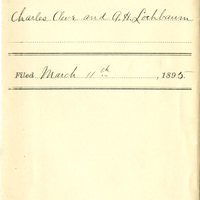 Charles Cleve and A. H. Lochbaum
Filed March 11th, 1895.